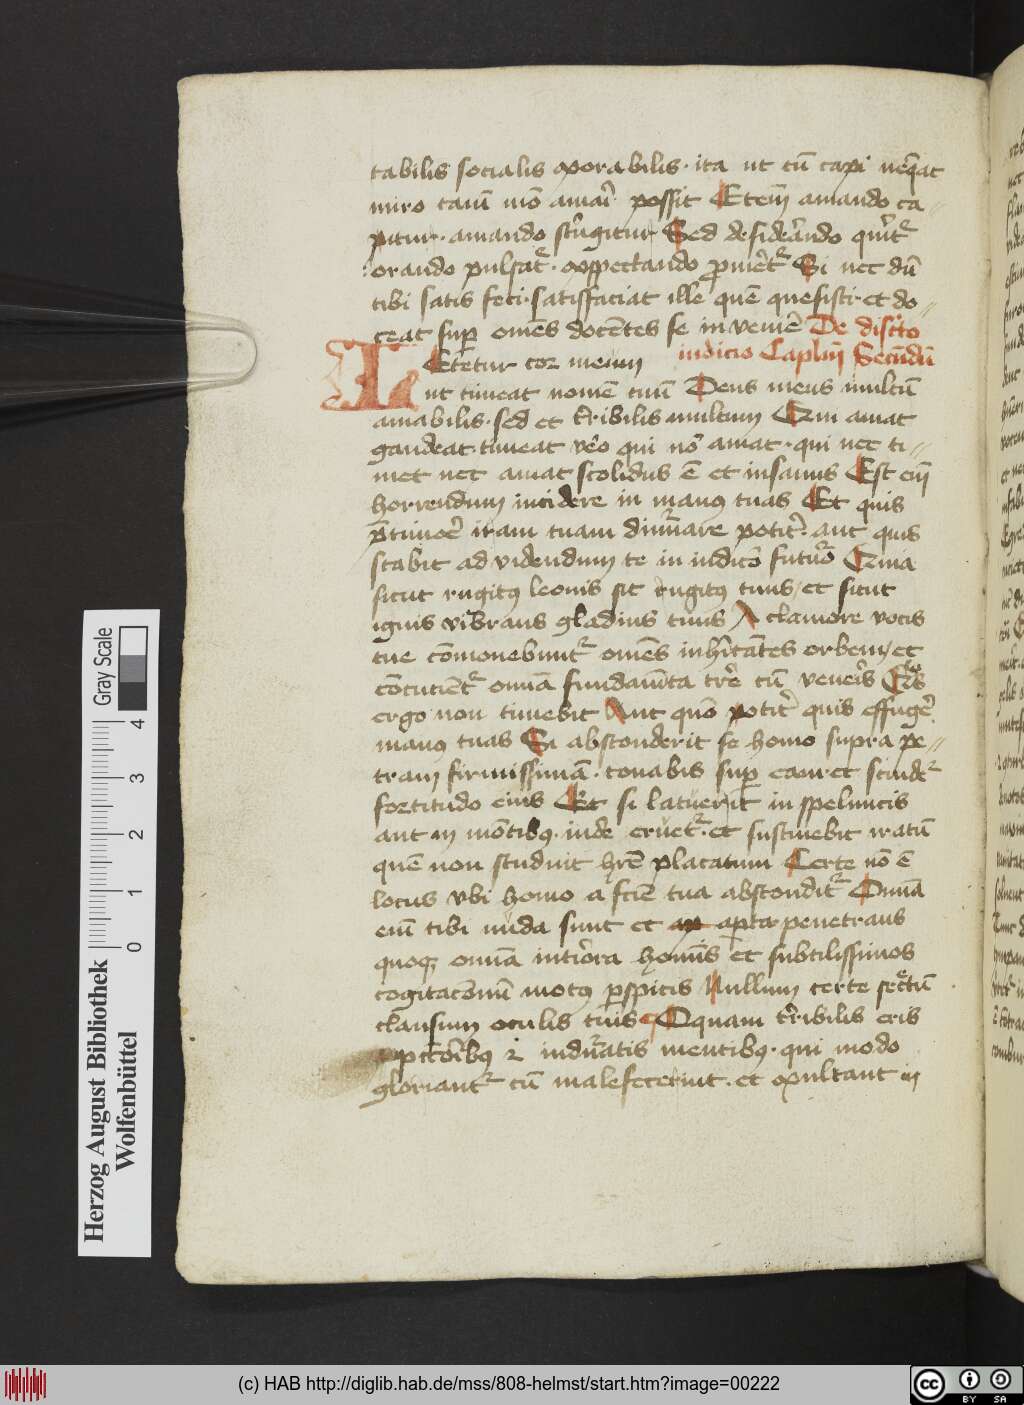 tabilis socialis exorabilis · ita ut cū capi neq̄at
miro tam̄ mō amar̄i possit Etem̄ amando ca //
pitur · amando stri̅gitur Sed desiderādo quirit᷑
orando pulsat᷑ · exspectando ꝓmēet᷑ Si nec dū
tibi satis feci · satisfaciat ille quē quesisti · et do //
ceat sup̄ om̄es docētes se invenire De districto
iudicio Capl'm Secūdū
Letetur cor meum
ut timeat nomē tuū Deus meus multū
amabilis · sed et t̄ribilis multum Qui amat
gaudeat · timeat v̄o qui nō amat · qui nec ti //
met nec amat stolidus ē et insanus Est em̄
horrendum incidere in manꝰ tuas Et quis
p̄timoc̄e iram tuam dinumerare potit̄ · aut quis
stabit ad videndum te in iudico futuro Quia
sicut rugitꝰ leonis sic rugitꝰ tuus / et sicut
ignis vibrans gladius tuus A clamore vocis
tue cōmonebunt᷑ om̄es inhītātes orbem / et
cōcuciēt᷑ om̄ia fundam̄ta tr̄e cū veneris Quis
ergo non timebit Aut quō potit̄ quis effugere
manꝰ tuas Si absconderit se homo supra pe //
tram firmissimā · tonabis sup̄ eam · et scindet᷑
fortitudo eius Et si latuerit in speluncis
aut in mōtibꝰ · inde eruet᷑ · et sustinebit iratū
quē non studuit hr̄e placatum Certe nō ē
locus vbi homo a fcīe tua abscondit᷑ Om̄ia
em̄ tibi nuda sunt et ap aperta penetrans
quoqꝫ om̄ia intiōra hom̄is et subtilissimos
cogitacōnū motꝰ p̄spicis Nullum certe secretū
clausum oculis tuis O quam t̄ribilis eris
pctōribꝰ ⁊ induratis mentibꝰ · qui modo
gloriant᷑ cū malefecerint · et exultant in
Herzog August Bibliothek
Wolfenbüttel
Gray Scale
0 1 2 3 4
(c) HAB http://diglib.hab.de/mss/808-helmst/start.htm?image=00222
cc BY SA